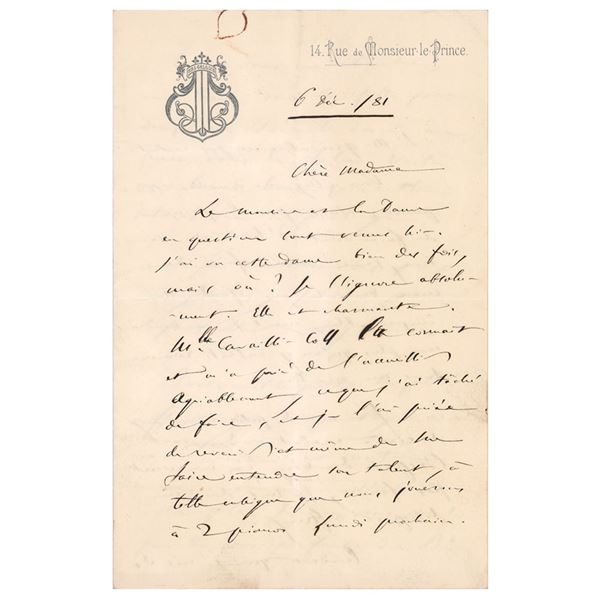 14. Rue de Monsieur-le-Prince.
6 déc. /81
Chère Madame
Le Monsieur et la Dame
en question sont venus hier.
J'ai vu cette dame bien des fois,
mais où ? Je l'ignore absolu-
-ment. Elle est charmante.
Mlle Cavaillé-Coll la connait
et m'a prié de l'accueillir
agréablement, ce que j'ai tâché
de faire, et je l'ai priée
de revenir et même de me
faire entendre son talent, à
telle que nous jouerons
à 2 pianos lundi prochain.